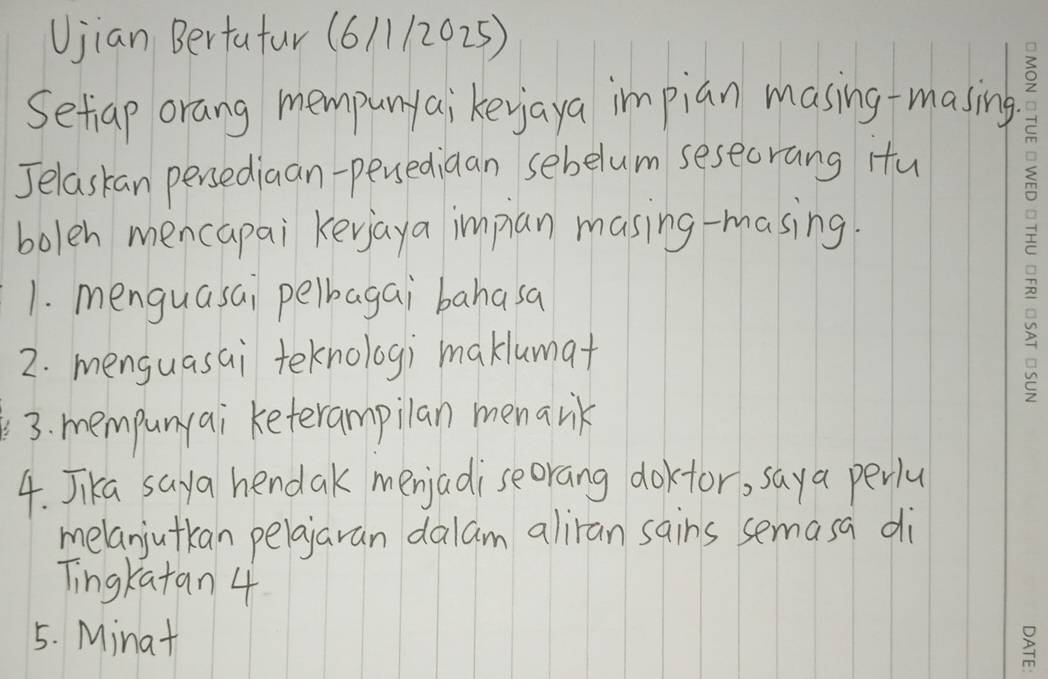 Ujian Bertutur (6/1/2025)
Setiap orang mempunyai kerjaya impian masing-masing.
Jelaskan persediaan-persediaan sebelum seseorang itu
boleh mencapai kerjaya impian masing-masing.
1. menguasai pelbagai bahasa
2. menguasai teknologi maklumat
3. mempunyai keterampilan menarik
4. Jika saya hendak menjadi seorang doktor, saya perlu
melanjutkan pelajaran dalam aliran sains semasa di
Tingkatan 4
5. Minat
□ MON □ TUE □ WED □ THU □ FRI □ SAT □ SUN
DATE: